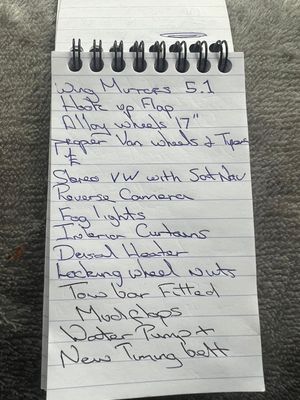 Wing Mirrors 5.1
Hook up Flap
Alloy wheels 17"
proper Van wheels & Tyres
£
Stereo VW with Sat Nav
Reverse Camera
Fog lights
Interior Curtains
Deisal Heater
Locking wheel nuts
Tow bar Fitted
Mudflaps
Water Pump +
New Timing belt